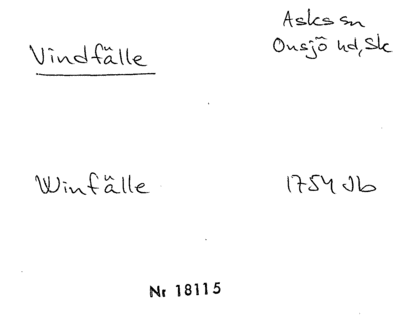 Asks sn
Vindfälle
Onsjö hd, Sk
Winfälle 1754 Jb
Nr 18115